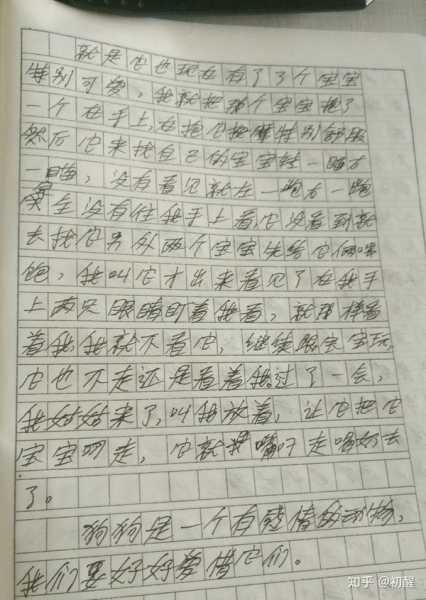 就是它也现在有了3个宝宝
特别可爱,我就把那个宝宝抱了
一个在手上,在抱它把摩特别舒服
然后它来找自己的宝宝转一瞄右
一瞄,没有看见就左一跑右一跑
完全没有往我手上看,它没看到就
去找它另外两个宝宝先给它俩喂
饱,我叫它才出来看见了在我手
上两只眼睛盯着我看,就那样看
着我,我就不看它,继续跟宝宝玩,
它也不走还是看着我,过了一会,
我妈妈来了,叫我放着,让它把它
宝宝叼走,它就把嘴叼走喂奶去
了。
狗狗是一个有感情的动物,
我们要好好爱惜它们。
知乎 @初醒